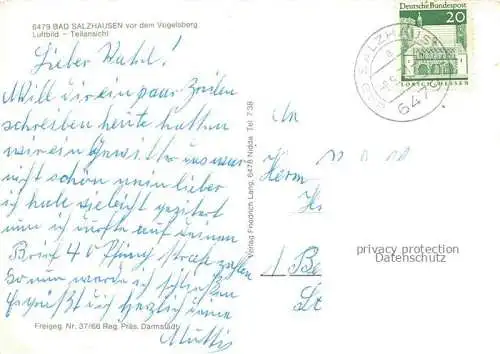 6479 BAD SALZHAUSEN vor dem Vogelsberg
Luftbild - Teilansicht
Lieber Karl!
Will dir ein paar Zeilen
schreiben heute hatten
wir ein Gewitter das war
nicht schön mein lieber
ich habe vieleicht gezittert
nun ich mußte auf deinen
Brief 40 Pfennig Straf zahlen
So nun werde ich schließen
Gegrüßt sei herzlich deine
Mutti
Freigeg. Nr. 37/66 Reg. Präs. Darmstadt
Verlag Friedrich Lang, 6478 Nidda Tel. 7 38
Deutsche Bundespost
20
LORSCH/HESSEN
BAD SALZHAUSEN
6479
An
Herrn
privacy protection
Datenschutz